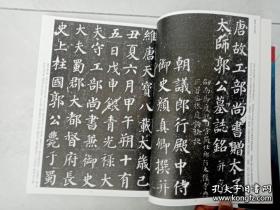 唐故工部尚書贈太
太師郭公墓誌銘并
朝議郎行殿中侍
御史顏真卿撰并
維唐天寶八載太歲己
丑夏六月甲午朔十有
五日戊申銀青光祿大
夫守工部尚書兼御史
大夫蜀郡大都督府長
史上柱國郭公薨于蜀
孔夫子旧书网